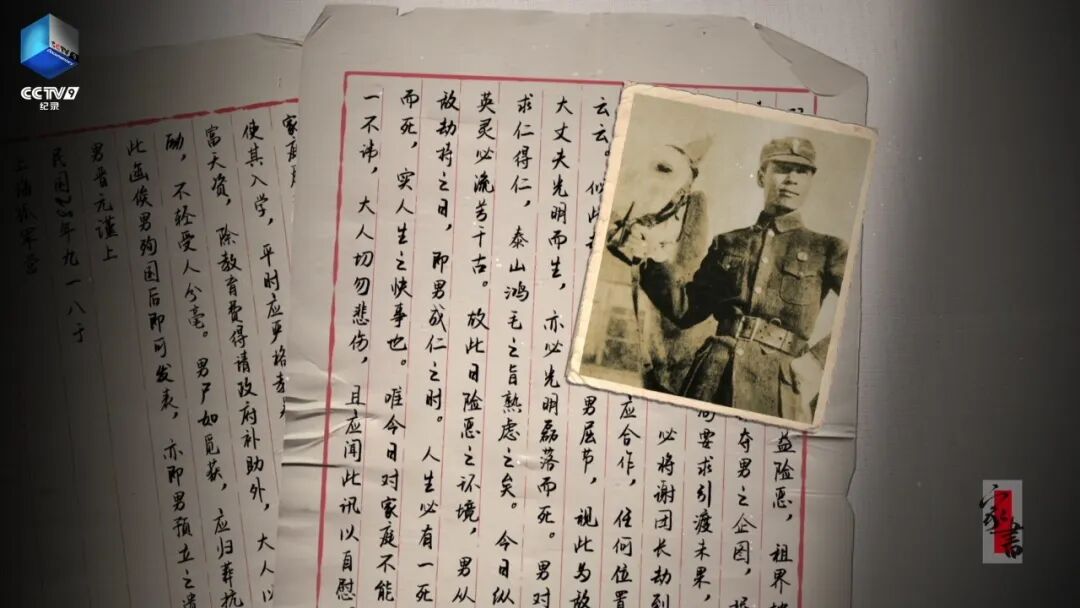 CCTV9
纪录
益险恶，租界
夺男之企图，
要求引渡未果，
必将谢团长劫到
应合作，任何位置
云云。似此
男屈节，视此为敌
大丈夫光明而生，亦必光明磊落而死。男对
求仁得仁，泰山鸿毛之旨熟虑之矣。今日纵
英灵必流芳千古。故此日险恶之环境，男从
敌劫持之日，即男成仁之时。人生必有一死
而死，实人生之快事也。唯今日对家庭不能
一不讳，大人切勿悲伤，且应闻此讯以自慰。
家庭
使其入学，平时应严格
富天资，除教育费得请政府补助外，大人以
励，不轻受人分毫。男尸如觅获，应归葬抗
此函俟男殉国后即可发表，亦即男预立之遗
男晋元谨上
民国28年九一八于
上海孤军营
家书